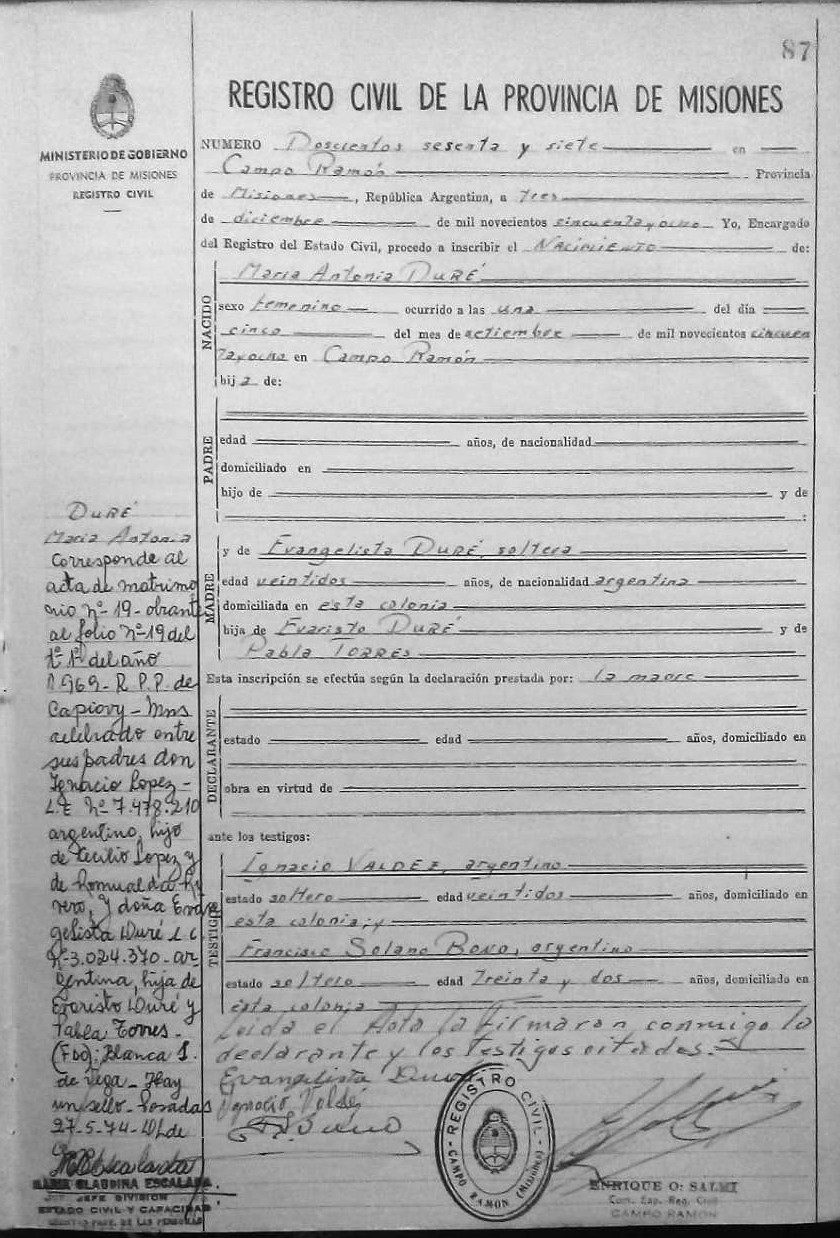 87
REGISTRO CIVIL DE LA PROVINCIA DE MISIONES
MINISTERIO DE GOBIERNO
PROVINCIA DE MISIONES
REGISTRO CIVIL
NUMERO Doscientos sesenta y siete en
Campo Ramón Provincia
de Misiones, República Argentina, a tres
de diciembre de mil novecientos cincuentayocho Yo, Encargado
del Registro del Estado Civil, procedo a inscribir el NACIMIENTO de:
NACIDO
Maria Antonia DURÉ
sexo femenino ocurrido a las una del día
cinco del mes de setiembre de mil novecientos cincuen
tayocho en Campo Ramón
hija de:
PADRE
edad años, de nacionalidad
domiciliado en
hijo de y de
:
MADRE
y de Evangelista DURÉ, soltera
edad veintidos años, de nacionalidad argentina
domiciliada en esta colonia
hija de Evaristo DURÉ y de
Pabla TORRES
Esta inscripción se efectúa según la declaración prestada por: la madre
DECLARANTE
estado edad años, domiciliado en
obra en virtud de
ante los testigos:
TESTIGOS
Ignacio VALDEZ, argentino
estado soltero edad veintidos años, domiciliado en
esta colonia; y
Francisco Solano BONO, argentino
estado soltero edad treinta y dos años, domiciliado en
esta colonia
Leida el Acta la firmaran conmigo la
declarante y los testigos citados.
Evangelista Dure
Ignacio Valdé
DURÉ
Maria Antonia
Corresponde al
acta de matrimo
nio nº 19 - obrante
al folio nº 19 del
tº 1º del año
1969 - R.P.P. de
Capiovy - Mns
celebrado entre
sus padres don
Ignacio Lopez -
L.E Nº 7.478.210
argentino, hijo
de Cecilio Lopez y
de Romualda Ri
vero, y doña Evan
gelista Duré L.C.
Nº 3.024.370 - ar
gentina, hija de
Evaristo Duré y
Pabla Torres -
(Fdo): Blanca S.
de Vega - Hay
un sello - Posadas
27-5-74
MARIA CLAUDINA ESCALADA
JEFE DIVISION
ESTADO CIVIL Y CAPACIDAD
REGISTRO CIVIL
CAMPO RAMON (Misiones)
ENRIQUE O. SALMI
Com. Esp. Reg. Civil
CAMPO RAMON